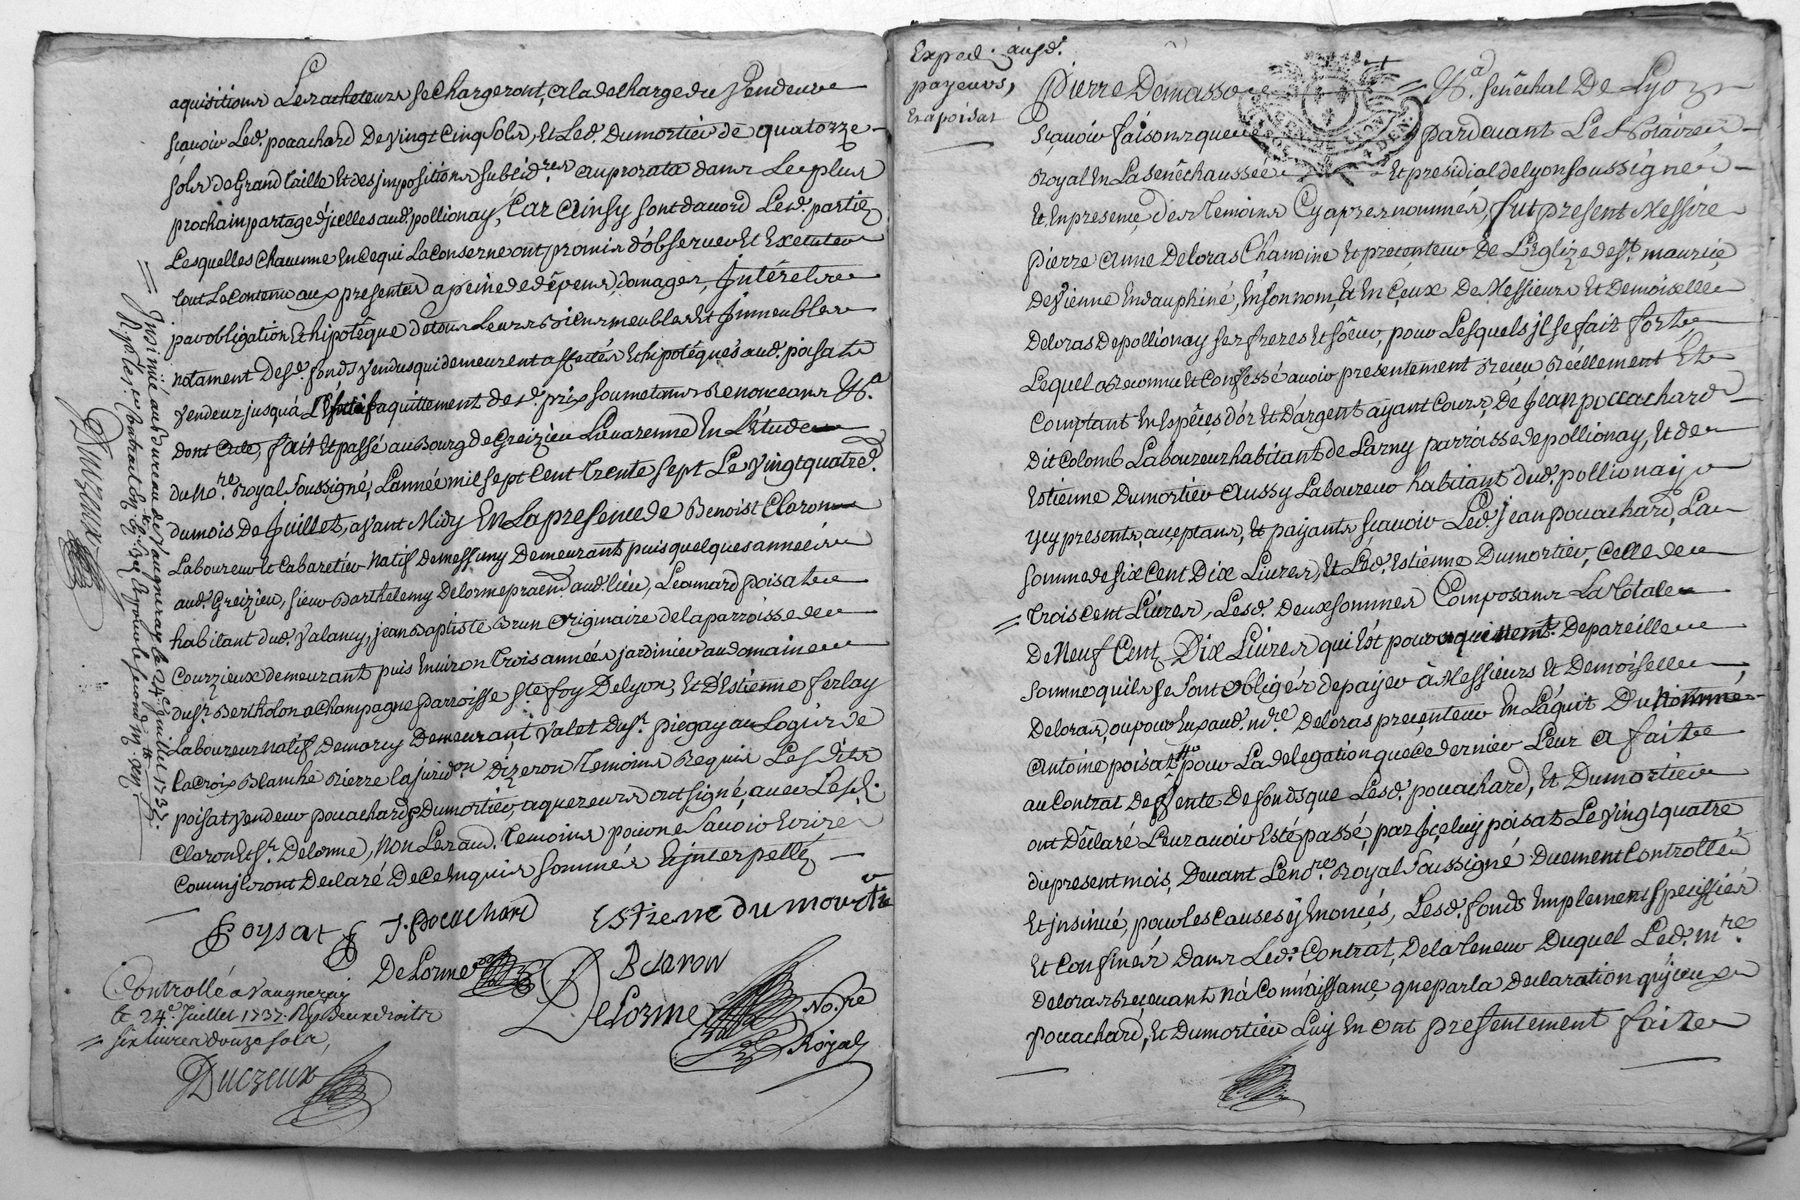 aquisitions Les acheteurs se Chargeront, a la decharge du Vendeur
sçavoir Led. pouachard De vingt Cinq sols, Et Led. Dumortier de quatorze
sols de Grand taille Et des jmpositions subsid.res au prorata dans Le plus
prochain partage d'jcelles aud. pollionay, Car Ainsy sont d'acord Les d. parties
Lesquelles Chacunne En ce qui La Conserne ont promis d'observer Et Executer
tout Le Contenu aux presentes a peine de dépens, domages, Intérets
par obligation Et hipotêque de tous Leurs Biens meubles Et Jmmeubles
notament Desd. fonds vendus qui demeurent affectés Et hipotéqués aud. poisat
vendeur jusquá aquittement dud. prix soumetans Renonceans &c.
Dont Acte, fait Et passé au Bourg de Greizieu Lavarenne En L'étude
du No.re Royal soussigné, L'année mil sept Cent trente sept Le vingt quatre
du mois De Juillet, avant Midy En La presence de Benoist Claron
Laboureur Et Cabaretier natif de messimy Demeurant puis quelques années
aud. Greizieu, sieur Barthelemy Delorme praen. aud. lieu, Léonard poisat
habitant dud. valancy, jean Baptiste Brun Originaire de la parroisse de
Courzieux demeurant puis Environ trois années jardinier au domaine
du sr. Bertholon a Champagne parroisse S.te foy De lyon, Et d'Estienne ferlay
Laboureur natif Demorcy Demeurant valet du sr. piegay au Logis de
la Croix Blanche Rierre la jurid.on Dizeron temoins Requis Lesdits
poisat vendeur pouachard & Dumortier, aquereurs ont signé, avec Lesd.
Claron Et sr. Delorme, Non Les aud. temoins pour ne savoir Ecrire
Comm'jls ont Declaré De Ce Enquis sommés & jnterpellés
Poysat J. Pouachard Estienne dumourtie
De Lorme B Claron
Delorme No.re
Royal
Controllé a Vaugneray
le 24.e Juillet 1737. R. deux droits
six livres douze sols,
Duczeux
Insinué au Bureau de Vaugneray le 24e juillet 1737.
Duczeux
Exped. ausd.
payeurs,
Et a poisat
Pierre Demasso &a. senêchal De Lyon
sçavoir faisons que pardevant Les Notaires
Royal En La senêchaussée Et presidial de lyon soussignés
Et En presence des temoins Cy apres nommés, fut present Messire
pierre Anne Deloras Chanoine Et precenteur De L'Eglize de st. maurice
de Vienne En dauphiné, En son nom, Et En Ceux De Messieurs Et Demoiselle
Deloras De pollionay ses freres Et sœur, pour Lesquels jl se fait fort
Lequel a Reconnu Et Confessé avoir presentement Reçu Réellement Et
Comptant En Espêces d'or Et d'argent ayant Cours, De Jean pouachard
Dit Colomb Laboureur habitant de Larny parroisse de pollionay, Et de
Estienne Dumortier Aussy Laboureur habitant dud. pollionay
ycy presents, aceptans, & payants sçavoir Led. Jean pouachard, La
somme de six Cent Dix Livres, Et Led. Estienne Dumortier, Celle de
trois cent Livres, Lesd. deux sommes Composans La totale
De Neuf Cent Dix Livres qui Est pour aquitement De pareille
somme quils se sont obligés de payer à Messieurs Et Demoiselle
Deloras, ou pour Eux aud. m.re Deloras precenteur En L'aquit Du Nommé
Antoine poisat pour La delegation que ce dernier Leur a faite
au Contrat De Vente De fonds que Lesd. pouachard, Et Dumortier
ont Déclaré Leur avoir Esté passé, par Jceluy poisat Le vingt quatre
du present mois, Devant Le no.re Royal soussigné Duement Controllé
Et jnsinué, pour les Causes y Enoncés, Lesd. fonds Emplement specifiés
Et Confinés dans Led. Contrat, De la teneur Duquel Led. m.re
Deloras Reçevant n'a Connaissance que par la Declaration qu'jceux
Pouachard, Et Dumortier Luy En ont presentement faite